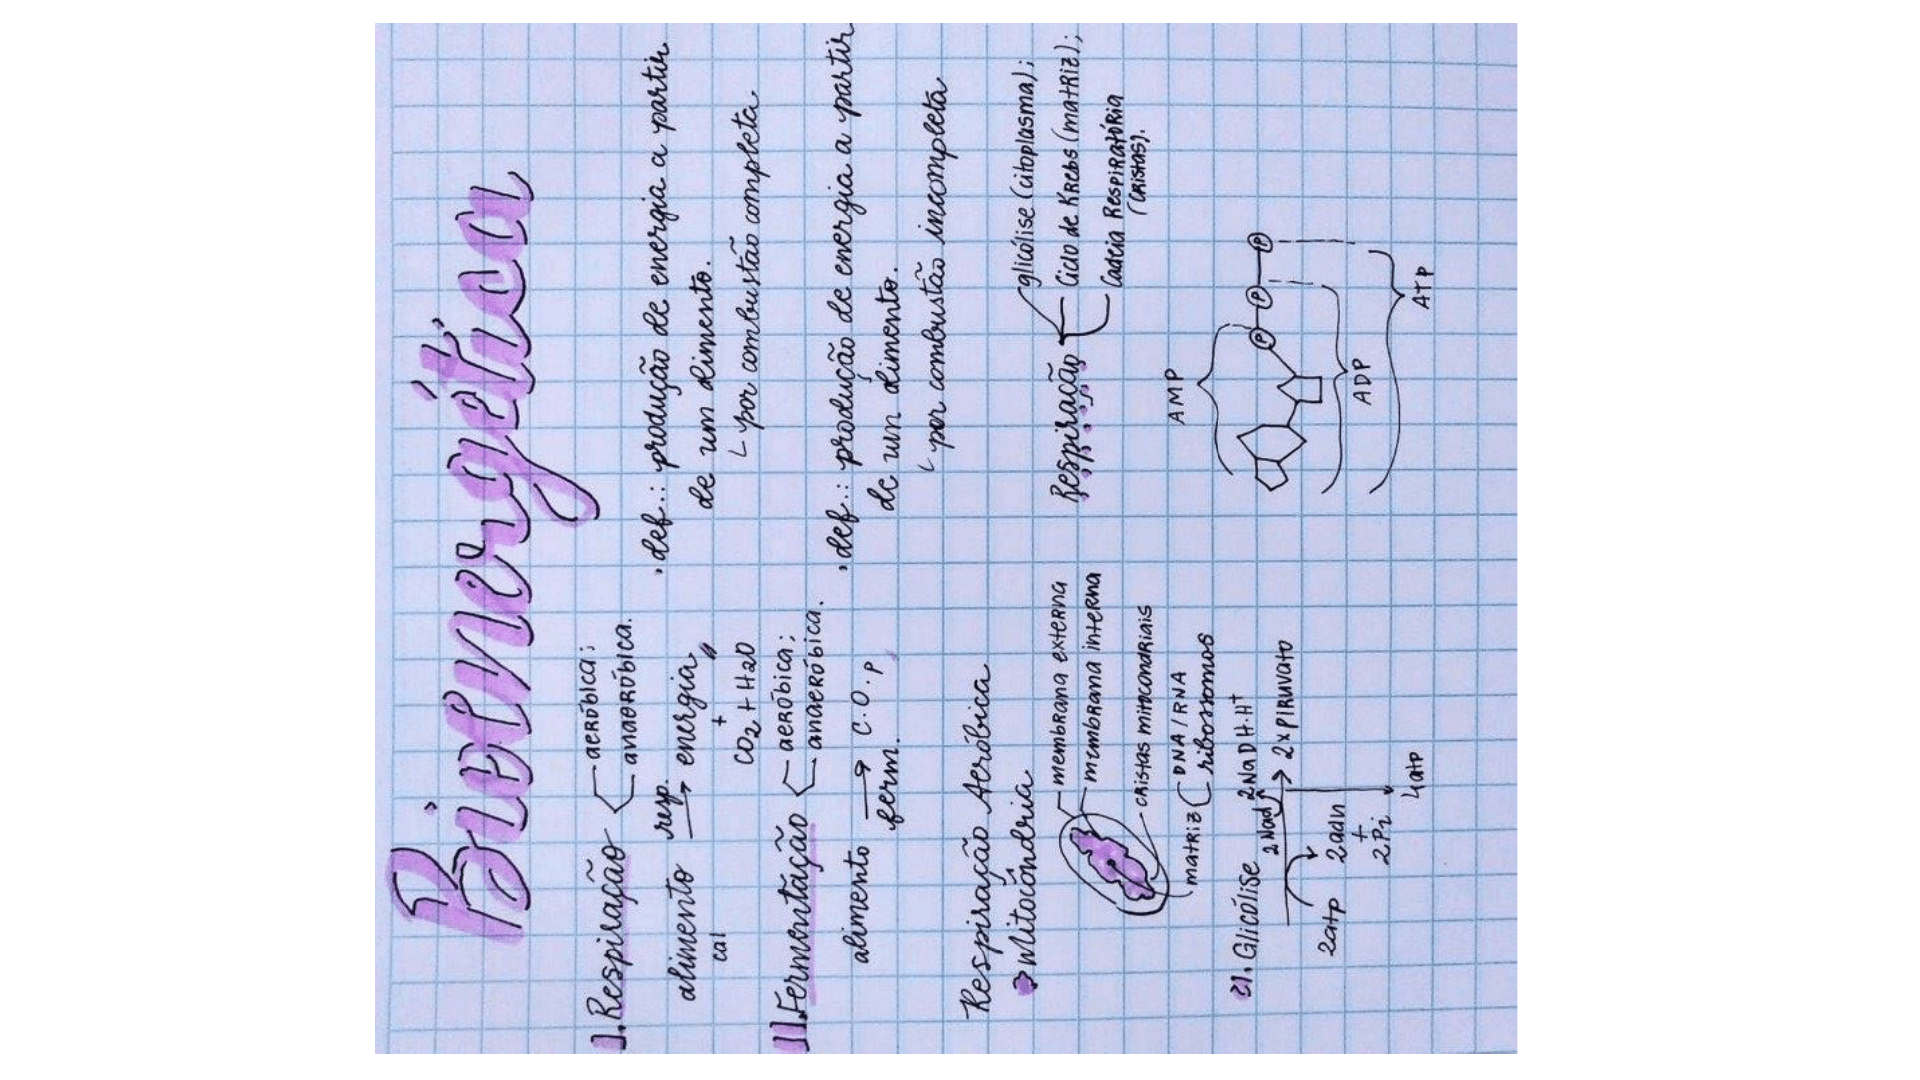 Bioenergética
I. Respiração
aeróbica;
anaeróbica.
alimento resp. → energia
cal
+
CO2 + H2O
. def.: produção de energia a partir
de um alimento.
por combustão completa
II. Fermentação
aeróbica;
anaeróbica.
alimento → C.O.P
ferm.
. def.: produção de energia a partir
de un alimento.
por combustão incompleta
Respiração Aeróbica
→ Mitocôndria
membrana externa
membrana interna
cristas mitocondriais
matriz
DNA / RNA
ribossomos
Respiração
glicólise (citoplasma);
Ciclo de Krebs (matriz);
Cadeia Respiratória
(cristas).
AMP
P P P
ADP
ATP
1. Glicólise
2 Nad 2 NaDH·H+
→ 2 x PIRUVATO
2atp 2adn
+
2Pi
4atp